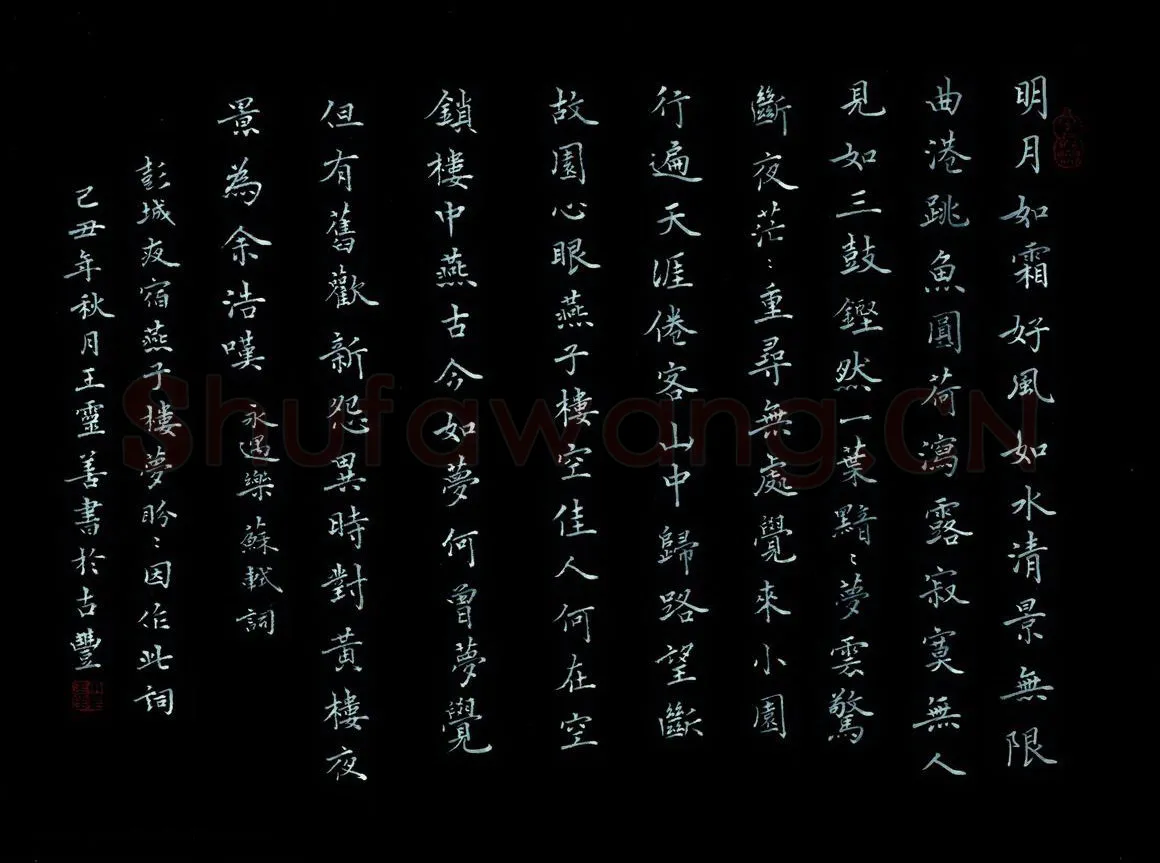 明月如霜好風如水清景無限
曲港跳魚圓荷瀉露寂寞無人
見如三鼓鏗然一葉黯〻夢雲驚
斷夜茫〻重尋無處覺來小園
行遍天涯倦客山中歸路望斷
故園心眼燕子樓空佳人何在空
鎖樓中燕古今如夢何曾夢覺
但有舊歡新怨異時對黃樓夜
景為余浩嘆
永遇樂蘇軾詞
彭城夜宿燕子樓夢盼〻因作此詞
己丑年秋月王靈善書於古豐
Shufawang.CN